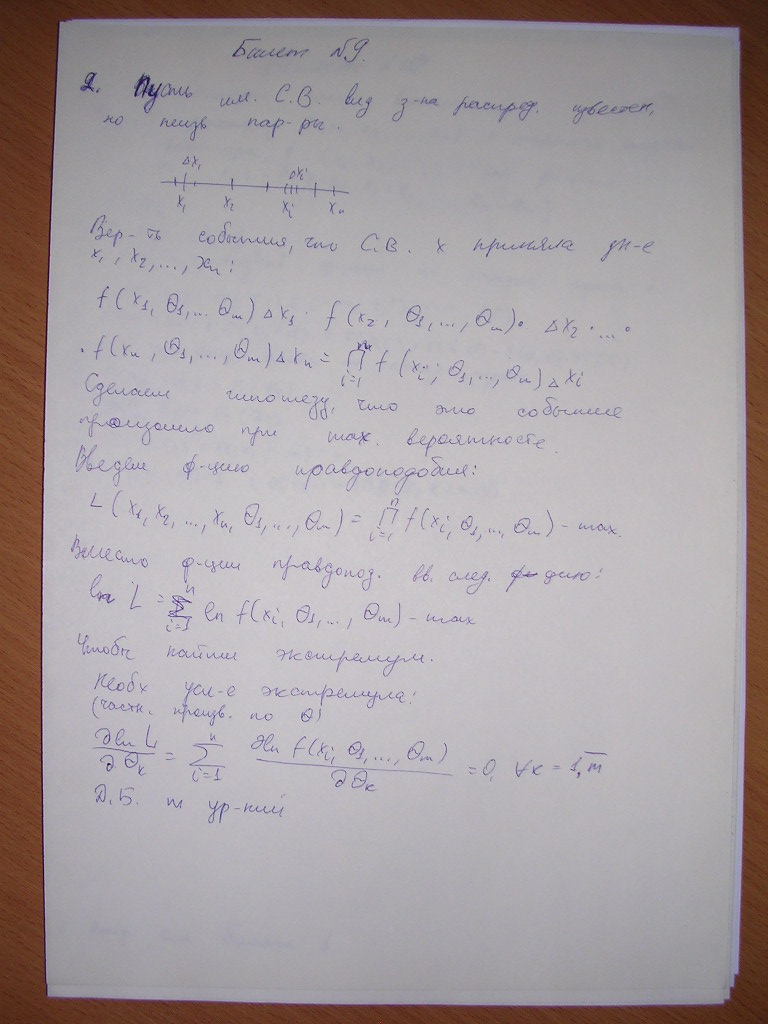 Билет №9.
2. Пусть им. С.В. вид з-на распред. известен,
но неизв пар-ры.
Δx₁ Δxᵢ
x₁ x₂ xᵢ xₙ
Вер-ть события, что С.В. x приняла зн-е
x₁, x₂, ..., xₙ:
f(x₁, θ₁, ... θₘ) Δx₁ · f(x₂, θ₁, ..., θₘ) · Δx₂ · ... ·
· f(xₙ, θ₁, ..., θₘ) Δxₙ = ∏ᵢ₌₁ⁿ f(xᵢ, θ₁, ..., θₘ) Δxᵢ
Сделаем гипотезу, что это событие
произошло при max. вероятности.
Введем ф-цию правдоподобия:
L(x₁, x₂, ..., xₙ, θ₁, ..., θₘ) = ∏ᵢ₌₁ⁿ f(xᵢ, θ₁, ..., θₘ) – max.
Вместо ф-ции правдопод. вв. след. ф-цию:
ln L = ∑ᵢ₌₁ⁿ ln f(xᵢ, θ₁, ..., θₘ) – max
Чтобы найти экстремум.
Необх усл-е экстремума:
(частн. произв. по θ)
∂ln L / ∂θₖ = ∑ᵢ₌₁ⁿ ∂ln f(xᵢ, θ₁, ..., θₘ) / ∂θₖ = 0, ∀k = 1,m̅
Д.Б. m ур-ний